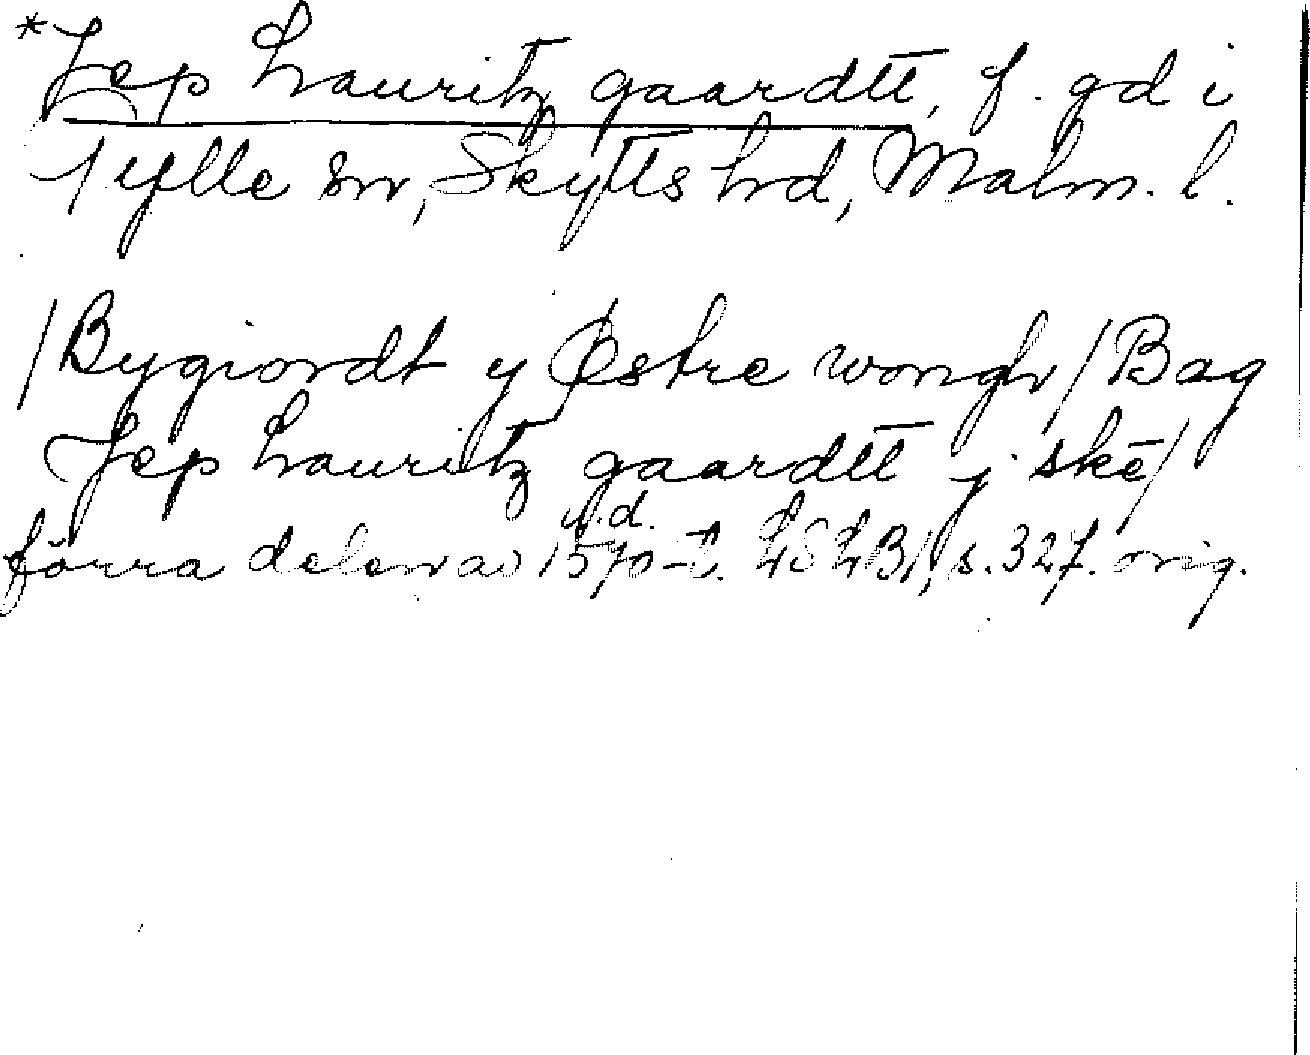 *Jep Lauritz gaardtt, f. gd i
Fylle sn, Skytts hd, Malm. l.
/Bygiordt y Østre wongh/Bag
Jep Lauritz gaardtt j skē/
u.d.
förra delen av 1570-t. LSLB1, s. 327. orig.